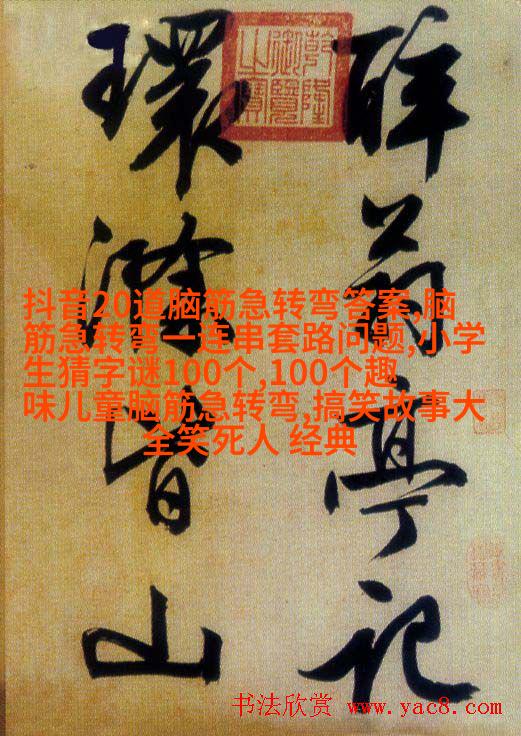 醉翁亭记
環滁皆山
乾隆御覽之寶
抖音20道脑筋急转弯答案,脑
筋急转弯一连串套路问题,小学
生猜字谜100个,100个趣
味儿童脑筋急转弯,搞笑故事大
全笑死人 经典
书法欣赏 www.yac8.com